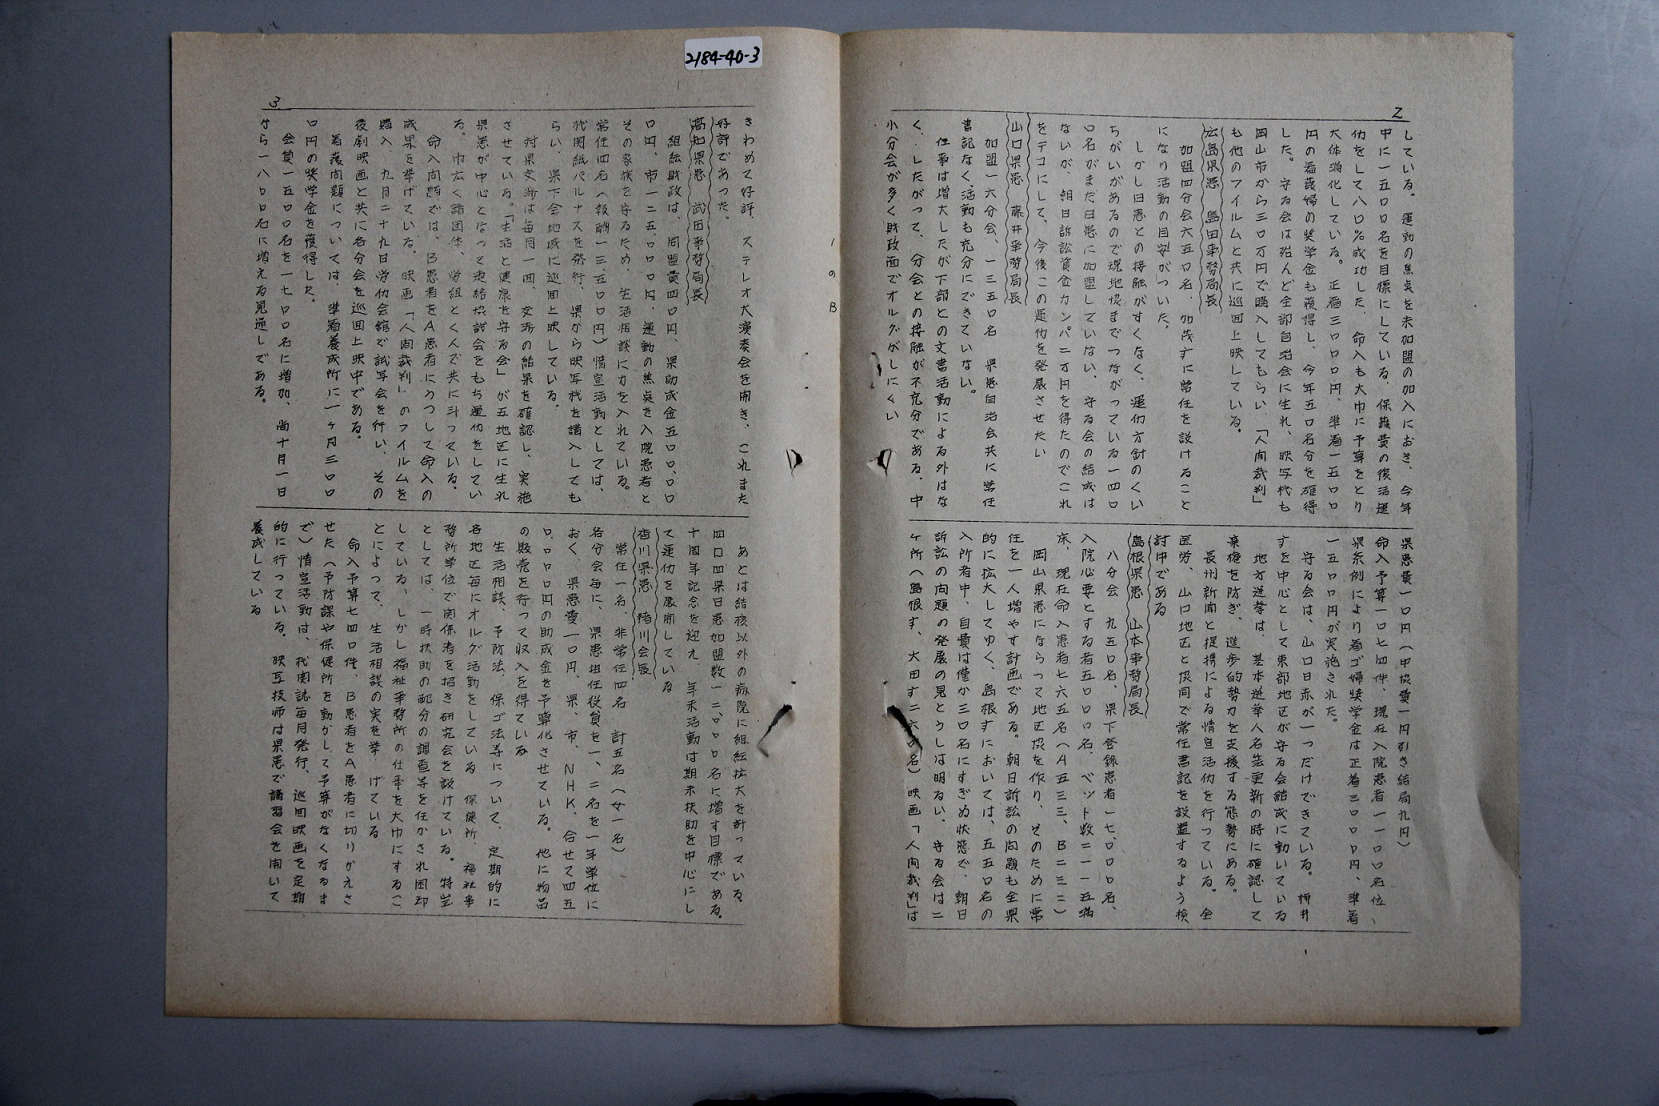 2184-40-3
2
している。運動の焦点を未加盟の加入におき、今年
中に一五〇〇名を目標にしている。保護費の復活運
仂をして八〇％成功した、命入も大巾に予算をとり
大体消化している。正看三〇〇〇円、準看一五〇〇
円の看護婦の奨学金も獲得し、今年五〇名分を確得
した。守る会は殆んど全部自治会に生れ、映写機も
岡山市から三〇万円で購入してもらい「人间裁判」
も他のフイルムと共に巡回上映している。
広島県患 島田事務局長
加盟四分会六五〇名、加茂すに常任を設けること
になり活動の目安がついた。
しかし日患との接融がすくなく、運仂方針のくい
ちがいがあるので現地患までつながっている一四〇
〇名がまだ日患に加盟していない、守る会の結成は
ないが、朝日訴訟資金カンパ二万円を得たのでこれ
をテコにして、今後この運仂を発展させたい
山口県患 藤井事務局長
加盟一六分会、一三五〇名 県患自治会共に常任
書記なく活動も充分にできていない。
仕事は増大したが下部との文書活動による外はな
く、したがって、分会との接融が不充分である、中
小分会が多く財政面でオルグがしにくい
県患費一〇円（中協費一円引き結局九円）
命入予算一〇七四件、現在入院患者一一〇〇名位、
県条例により看ゴ婦奨学金は正看三〇〇〇円、準看
一五〇〇円が実施された。
守る会は、山口日赤が一つだけできている。柳井
すを中心として東部地区が守る会結成に動いている
地方選挙は、基本選挙人名簿更新の時に確認して
棄権を防ぎ、進歩的勢力を支援する態勢にある。
長州新闻と提携による情宣活仂を行っている。全
医労、山口地区と協同で常任書記を設置するよう検
討中である
島根県患 山本事務局長
八分会 九五〇名、県下登録患者一七、〇〇〇名、
入院必要とする者五〇〇〇名 ベット数二一一五満
床、現在命入患者七六五名（A五三三、B二三二）
岡山県患にならって地区協を作り、そのために常
任を一人増やす計画である。朝日訴訟の问題も全県
的に拡大してゆく、島根すにおいては、五五〇名の
入所者中、自費は僅か三〇名にすぎぬ状態で、朝日
訴訟の向題の発展の見とうしは明るい、守る会は二
ヶ所（島根す、大田す二六〇名）映画「人间裁判」は
1のB
3
きわめて好評、ステレオ大演奏会を開き、これまた
好評であった。
高知県患 武田事務局長
組織財政は、同盟費四〇円、県助成金五〇〇、〇〇
〇円、市一二五、〇〇〇円、運動の焦点を入院患者と
その家族を守るため、生活相談に力を入れている。
常任四名（報酬一三、五〇〇円）情宣活動としては、
机関紙パルナスを発行、県から映写机を購入しても
らい、県下全地域に巡回上映している。
対県交渉は毎月一回、交渉の結果を確認し、実施
させている。「生活と健康を守る会」が五地区に生れ
県患が中心となって連絡協討会をもち運仂をしてい
る。巾広く諸団体、労組とくんで共に斗っている。
命入问題では、B患者をA患者にうつして命入の
成果を挙げている。映画「人间裁判」のフイルムを
購入、九月二十九日労仂会館で試写会を行い、その
後劇映画と共に各分会を巡回上映中である。
看護问題については、準看養成所に一ヶ月三〇〇
〇円の奨学金を獲得した。
会員一五〇〇名を一七〇〇名に増加、尚十月一日
から一八〇〇名に増える見通しである。
あとは結核以外の病院に組織拡大を計っている。
四〇四県日患加盟数一二、〇〇〇名に増す目標である。
十周年記念を迎え 年末活動は期末扶助を中心にし
て運仂を展開している
香川県患 猪川会長
常任一名、非常任四名 計五名（女一名）
各分会毎に、県患担任役員を一、二名を一年学位に
おく、県患費一〇円、県、市、NHK、合せて四五
〇、〇〇〇円の助成金を予算化させている。他に物品
の販売を行って収入を得ている
生活相談、予防法、保ゴ法等について、定期的に
各地区毎にオルグ活動をしている 保健所、福祉事
務所学位で関係者を招き研究会を設けている。特生
としては、一時扶助の配分の調査等を任かされ困却
している、しかし福祉事務所の仕事を大巾にするこ
とによって、生活相談の実を挙げている
命入予算七四〇件、B患者をA患者に切りかえさ
せた（予防課や保健所を動かして予算がなくなるま
で）情宣活動は、机関誌毎月発行、巡回映画を定期
的に行っている。映写技師は県患で講習会を開いて
養成している